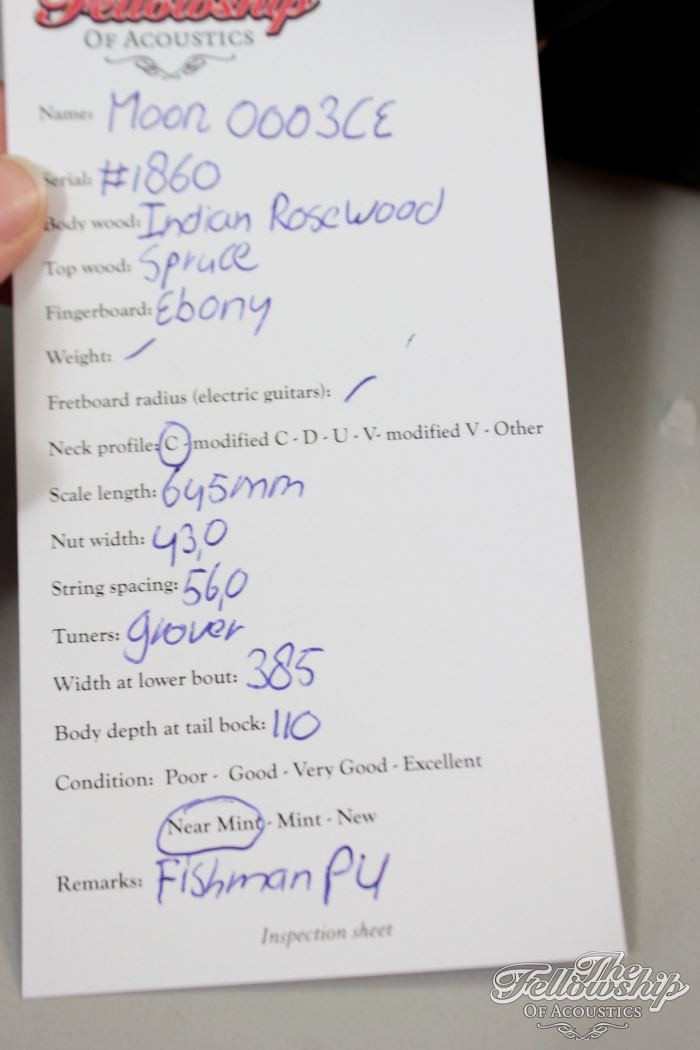 Fellowship
OF ACOUSTICS
Name: Moon 0003CE
Serial: #1860
Body wood: Indian Rosewood
Top wood: Spruce
Fingerboard: Ebony
Weight: /
Fretboard radius (electric guitars): /
Neck profile: C - modified C - D - U - V- modified V - Other
Scale length: 645mm
Nut width: 43,0
String spacing: 56,0
Tuners: Grover
Width at lower bout: 385
Body depth at tail bock: 110
Condition: Poor - Good - Very Good - Excellent
Near Mint - Mint - New
Remarks: Fishman PU
Inspection sheet
The
Fellowship
OF ACOUSTICS